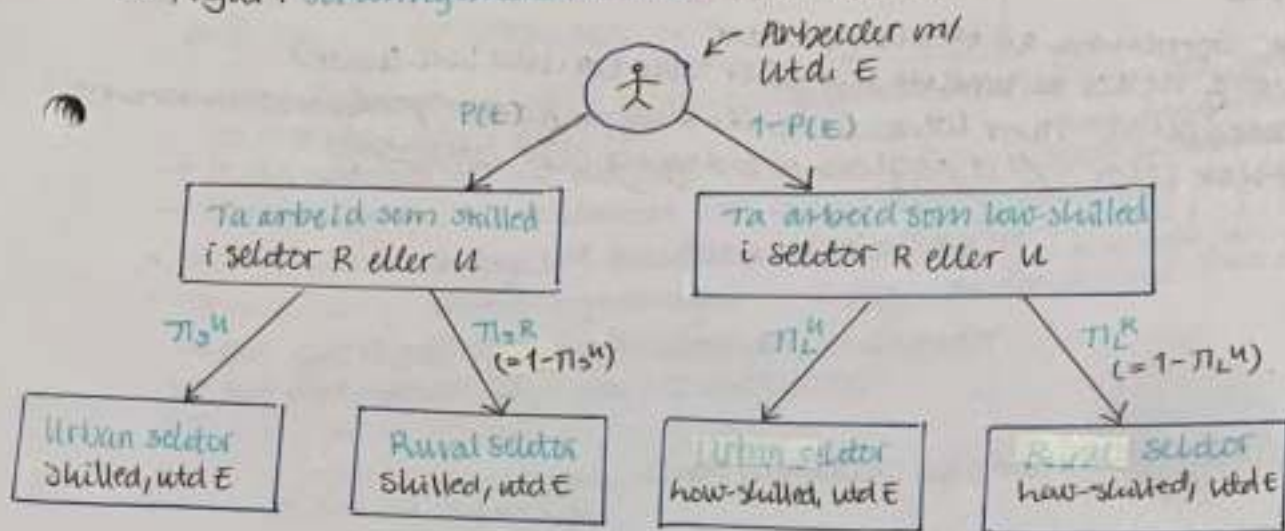 Arbeider m/
utd. E
P(E)
1-P(E)
Ta arbeid som skilled
i sektor R eller U
Ta arbeid som low-skilled
i sektor R eller U
πs^U
πs^R
(=1-πs^U)
π_L^U
π_L^R
(=1-π_L^U)
Urban sektor
skilled, utd E
Rural sektor
skilled, utd E
Urban sektor
low-skilled, utd E
Rural sektor
low-skilled, utd E